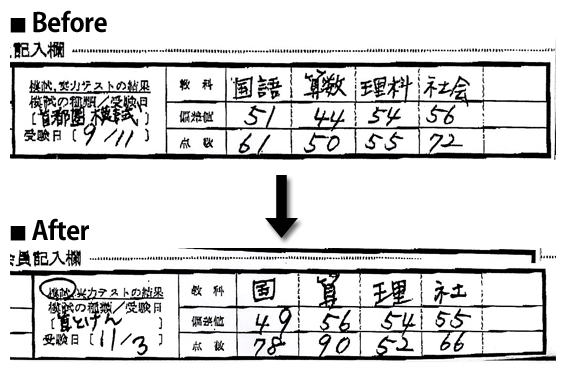 ■ Before
記入欄
模試,実力テストの結果 教科 国語 算数 理科 社会
模試の種類/受験日
[首都圏模試] 偏差値 51 44 54 56
受験日 [9/11] 点数 61 50 55 72
■ After
会員記入欄
模試,実力テストの結果 教科 国 算 理 社
模試の種類/受験日
[首とけん] 偏差値 49 56 54 55
受験日 [11/3] 点数 78 90 52 66